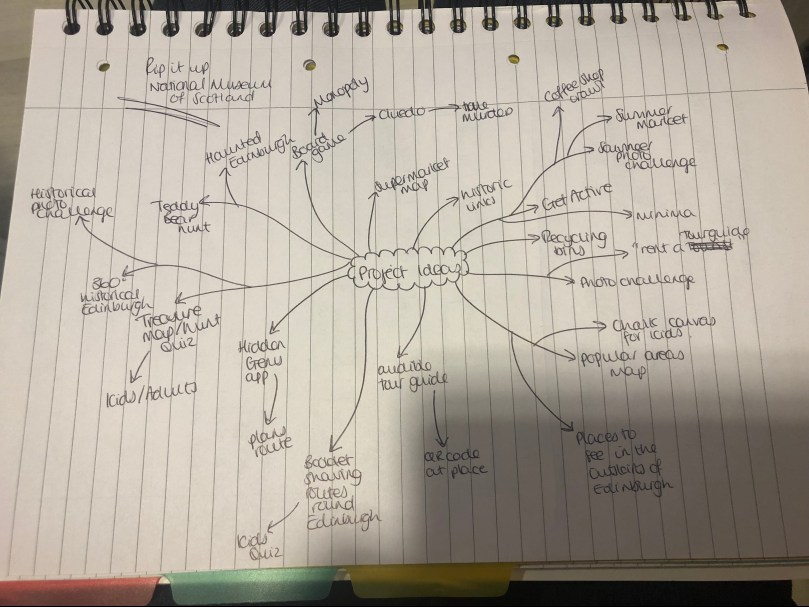 Rip it up
National Museum
of Scotland
Monopoly
Cluedo
murder
Coffee shop
crawl
Summer
market
Haunted
Edinburgh
Board
game
Summer
photo
challenge
Supermarket
map
Historic
links
Get Active
minima
Historical
photo
challenge
Teddy
Bear
hunt
Recycling
bins
"rent a Tourguide
Project Ideas
Photo challenge
360°
historical
Edinburgh
Treasure
map/hunt
Quiz
Kids/Adults
Hidden
Gems
app
plans
route
audio
tour guide
QR code
at place
Chalk canvas
for kids
popular areas
map
Booklet
showing
routes
round
Edinburgh
Kids
Quiz
Places to
see in the
outskirts of
Edinburgh